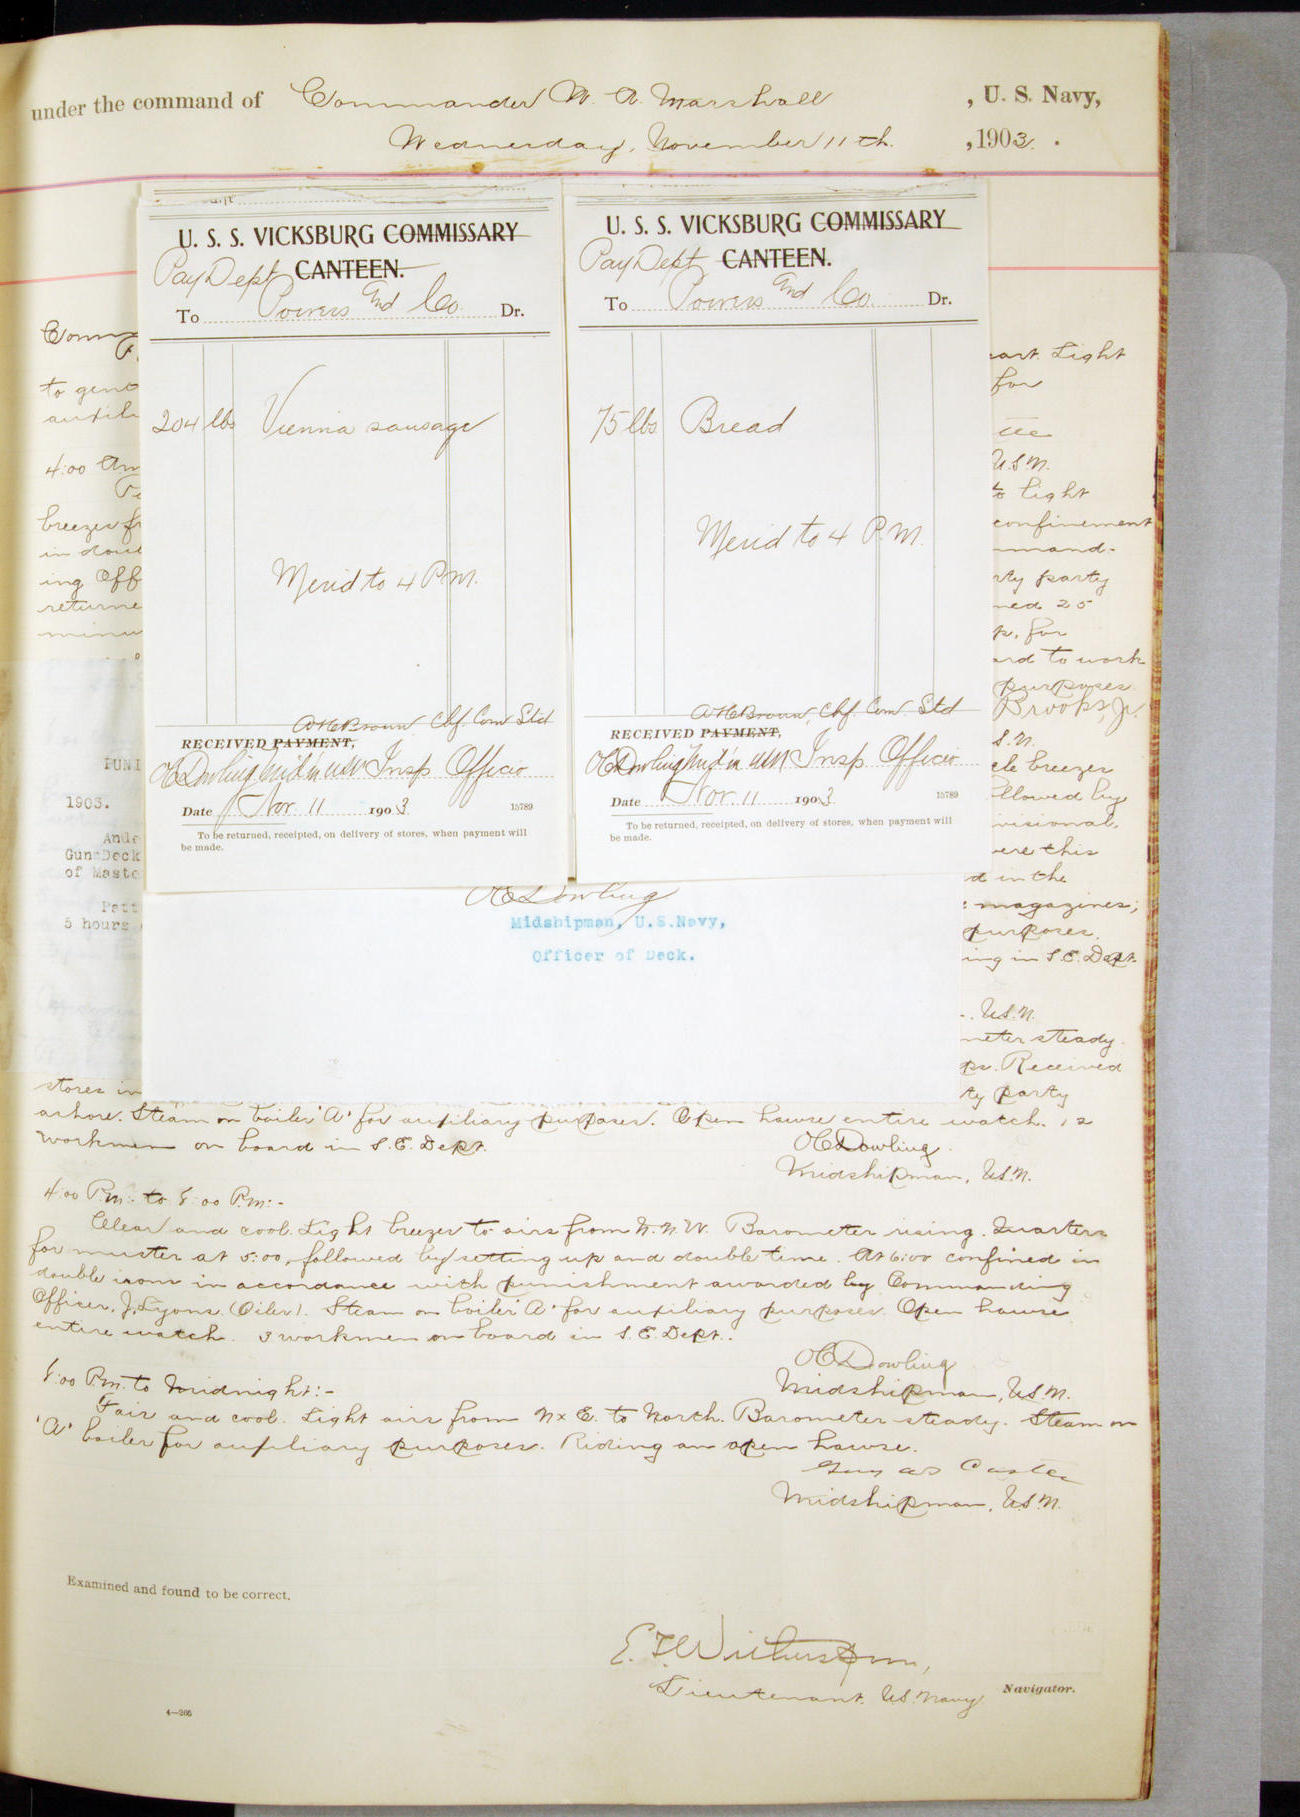 under the command of Commander W. A. Marshall , U. S. Navy,
Wednesday, November 11th. , 1903.
U. S. S. VICKSBURG COMMISSARY
Pay Dept CANTEEN.
To Powers and Co. Dr.
204 lbs Vienna sausage
Merid to 4 P.M.
Chf. Com. Std
RECEIVED PAYMENT,
Insp Officer
Date Nov. 11 1903 15789
To be returned, receipted, on delivery of stores, when payment will
be made.
U. S. S. VICKSBURG COMMISSARY
Pay Dept CANTEEN.
To Powers and Co. Dr.
75 lbs Bread
Merid to 4 P.M.
Chf. Com. Std
RECEIVED PAYMENT,
Insp Officer
Date Nov. 11 1903 15789
To be returned, receipted, on delivery of stores, when payment will
be made.
Comm
to gent
4:00 Am
breezes fr
ing Off
returne
minu
PUNI
1903.
Ande
Gun Deck
of Maste
Patt
5 hours
Light
for
U.S.N.
to light
confinement
mmand-
rty party
ned 25
for
ard to work
purposes
Brooks, Jr.
S.N.
breezes
llowed by
ivisional,
ere this
d in the
magazines;
purposes.
ing in S.E. Dept.
U.S.N.
meter steady.
ps. Received
ty party
Dowling
Midshipman, U.S.Navy,
Officer of Deck.
stores in
ashore. Steam on boiler 'A' for auxiliary purposes. Open hawse entire watch. 12
workmen on board in S.E. Dept.
Dowling
Midshipman, U.S.N.
4:00 P.m. to 8:00 P.m:-
Clear and cool. Light breezes to airs from N.N.W. Barometer rising. Quarters
for muster at 5:00, followed by setting up and double time. At 6:00 confined in
double irons in accordance with punishment awarded by Commanding
Officer, J. Lyons (Oiler). Steam on boiler 'A' for auxiliary purposes. Open hawse
entire watch. 3 workmen on board in S.E. Dept..
Dowling
Midshipman, U.S.N.
8:00 P.m. to Midnight:-
Fair and cool. Light airs from N x E. to North. Barometer steady. Steam on
'A' boiler for auxiliary purposes. Riding an open hawse.
Guy W S Castle
Midshipman, U.S.N.
Examined and found to be correct.
E. T. Witherspoon,
Lieutenant, U.S. Navy Navigator.
4—266